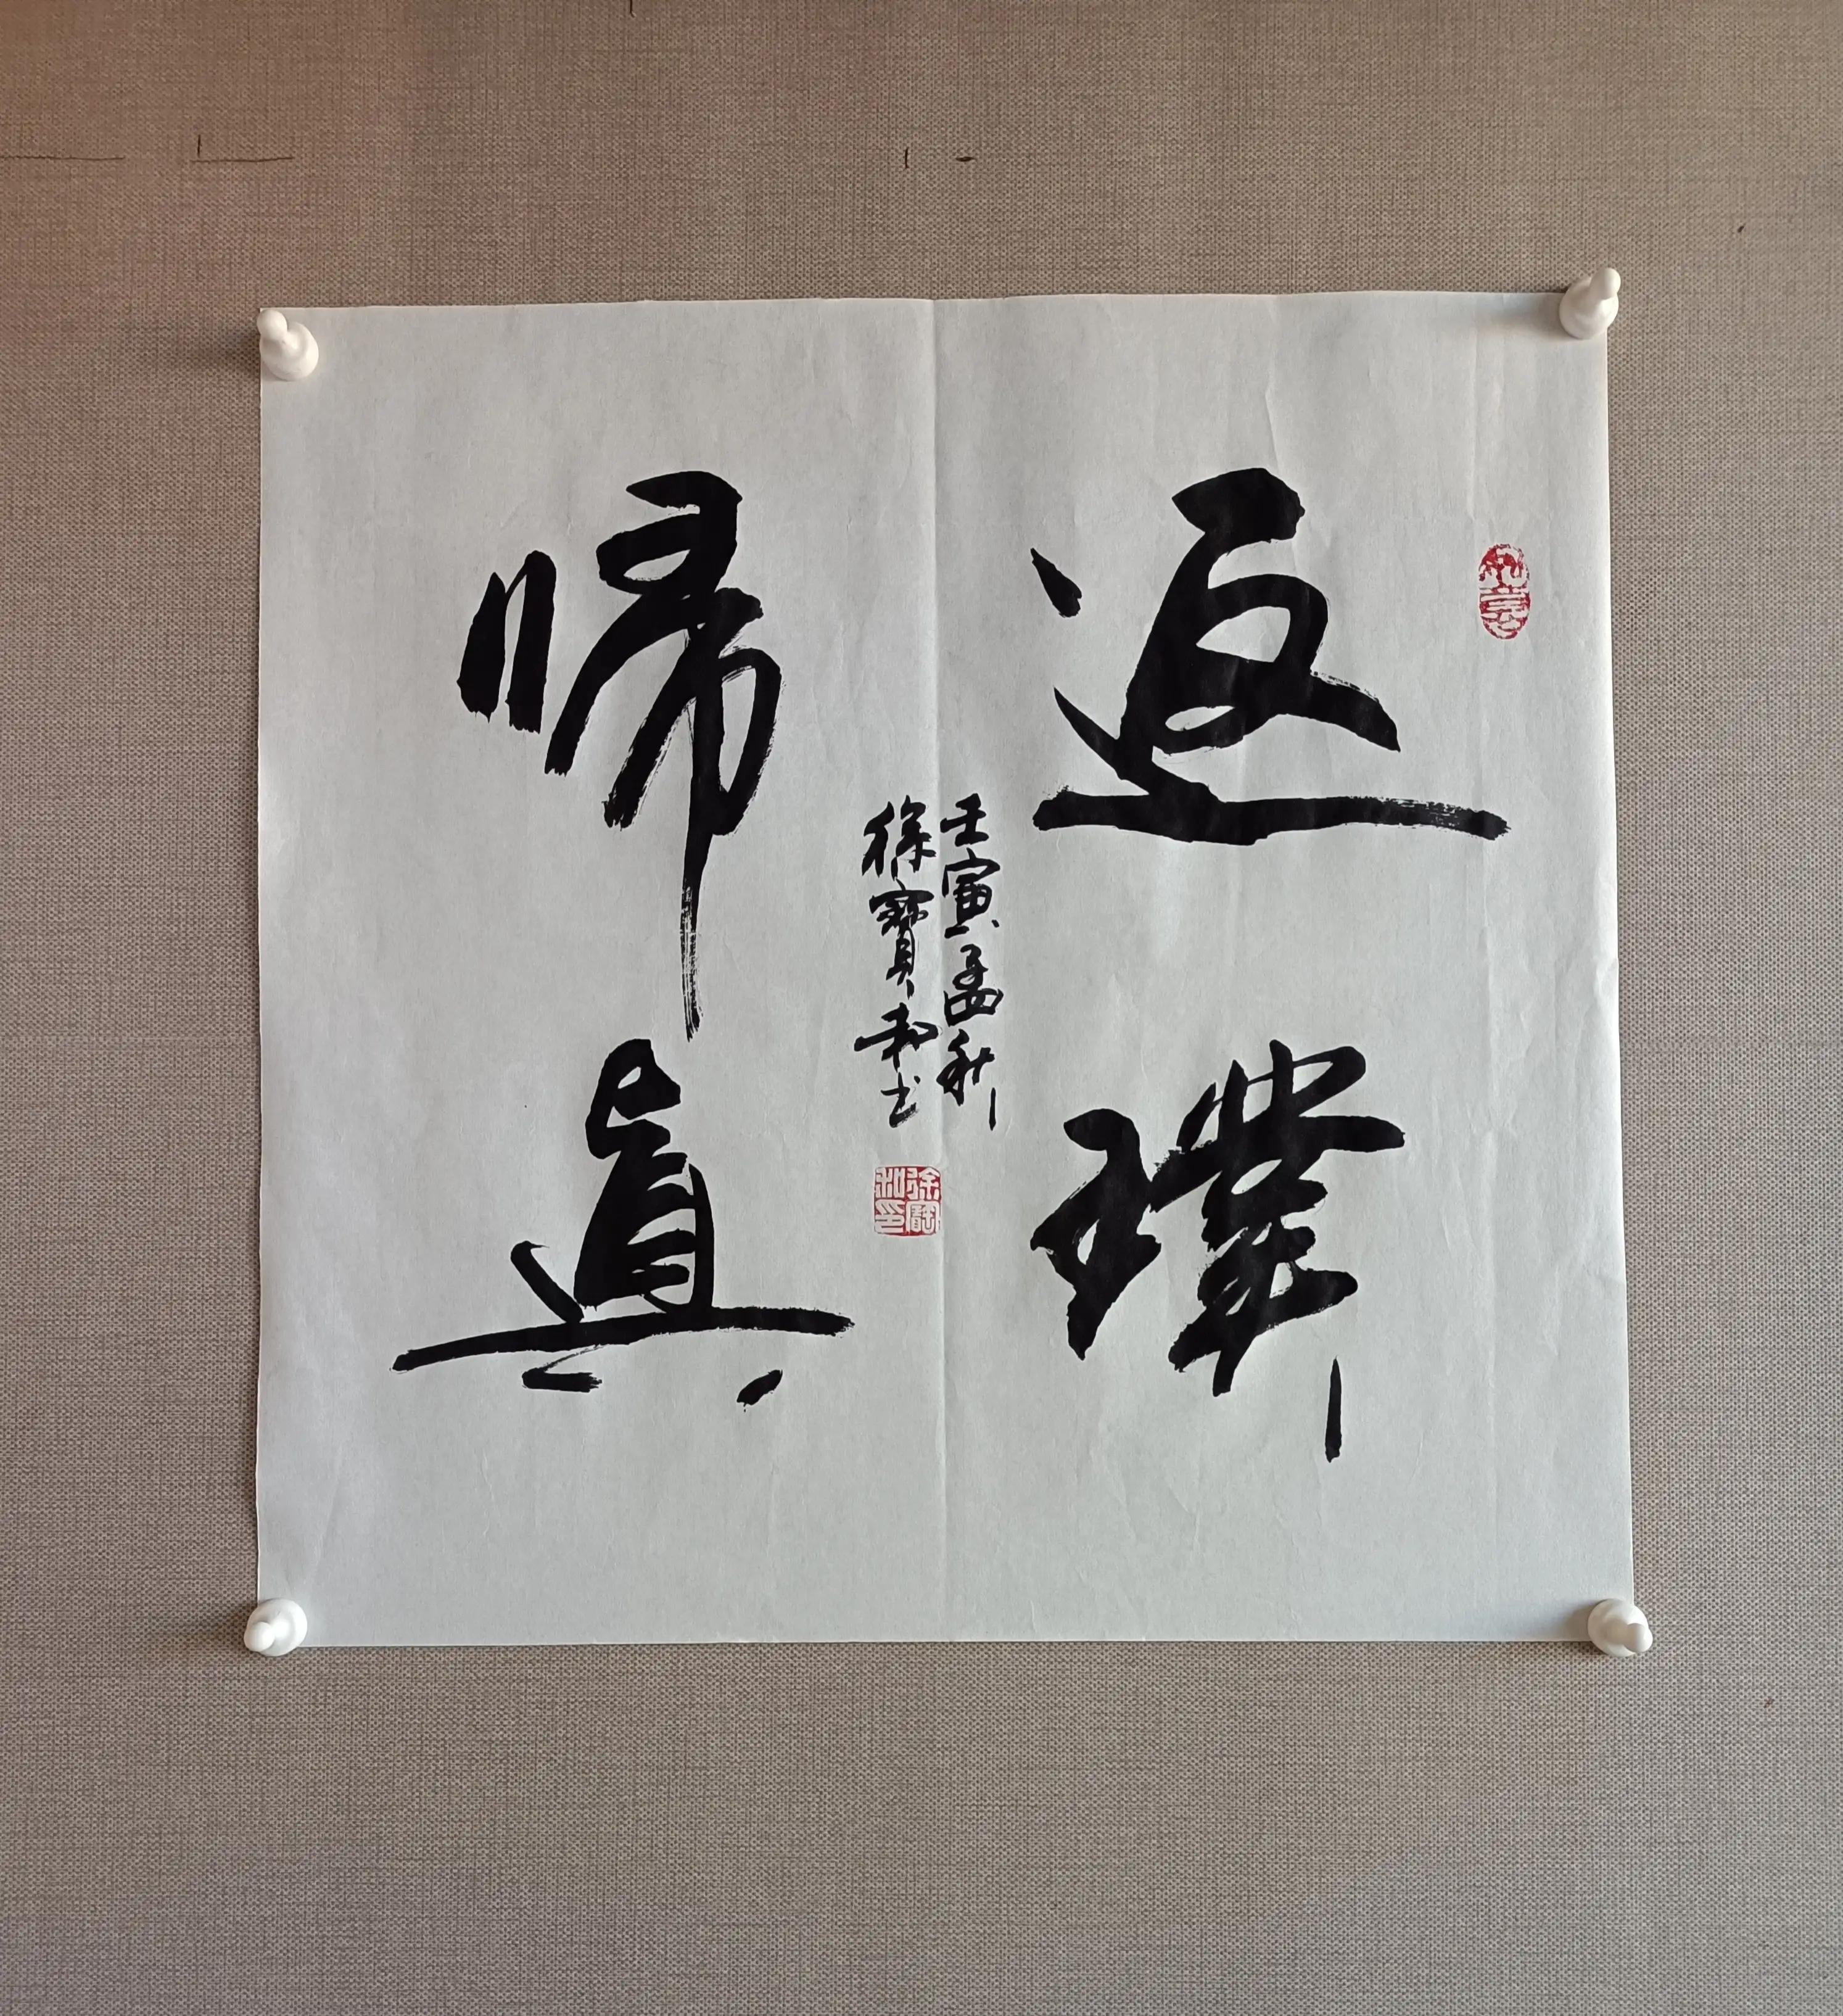 返璞
歸真
壬寅孟秋
徐寶和书
徐寶和印